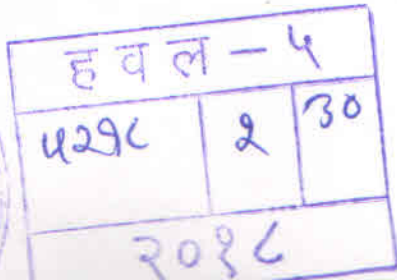 हवल - ५
५२१८ २ ३०
२०१८